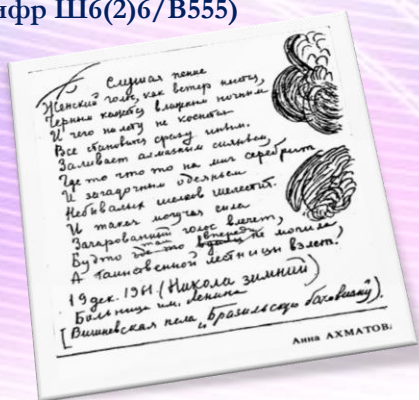 ифр Ш6(2)6/В555)
Слушая пение
Женский голос, как ветер несется,
Черным кажется влажным ночным
И чего на лету не коснется
Все становится сразу иным.
Заливает алмазным сияньем
Где то что то на миг серебрит
И загадочным одеяньем
Небывалых шелков шелестит.
И такая могучая сила
Зачарованный голос влечет,
Будто там впереди не могила,
А таинственной лестницы взлет.
19 дек. 1961. (Никола зимний)
Больница им. Ленина
[Вишневская пела „Бразильскую баховиану“).
Анна АХМАТОВ